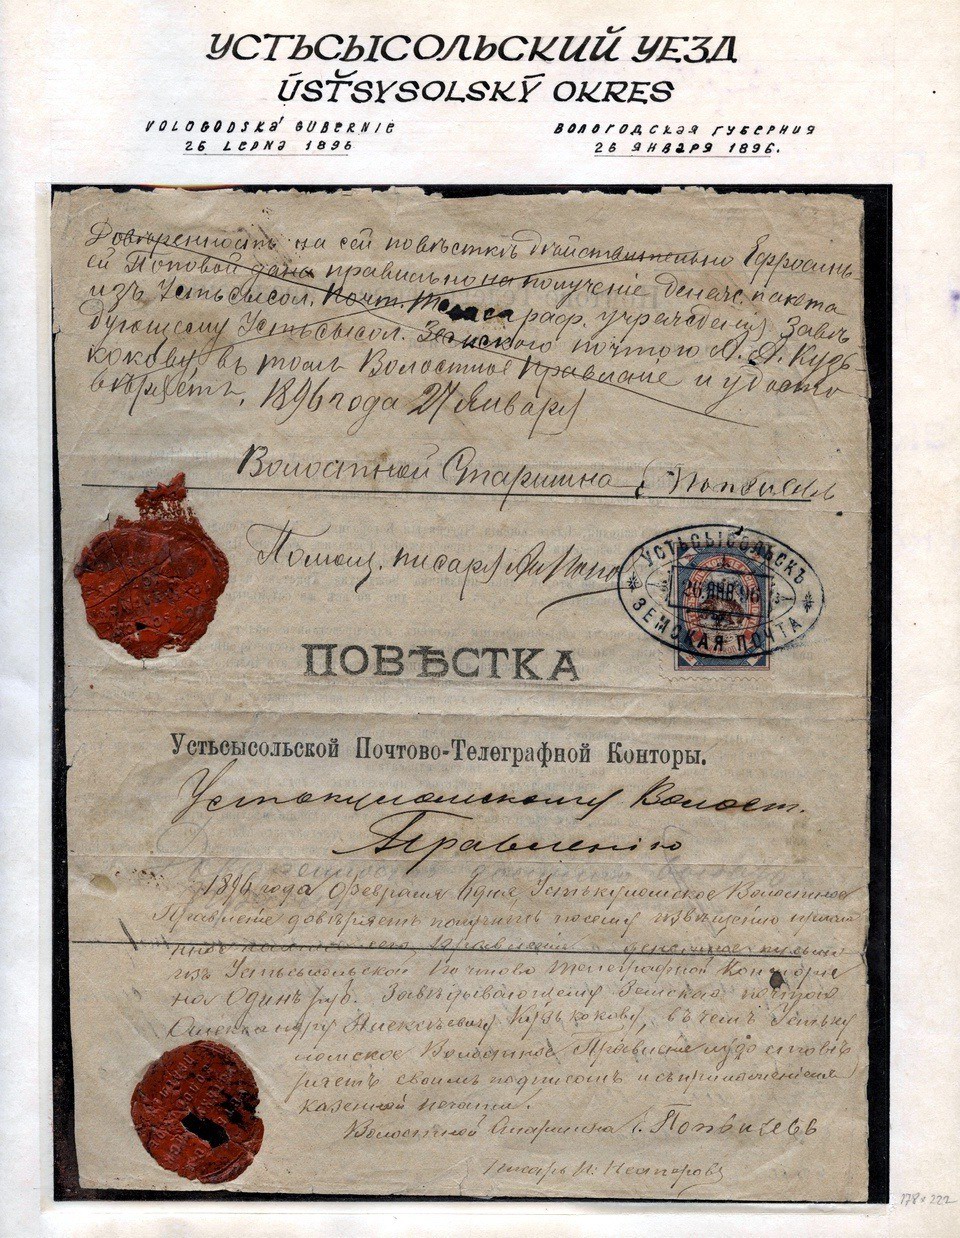 УСТЬСЫСОЛЬСКИЙ УЕЗД
ÚSŤSYSOLSKÝ OKRES
VOLOGODSKÁ GUBERNIE
26 LEDNA 1896
ВОЛОГОДСКАЯ ГУБЕРНИЯ
26 ЯНВАРЯ 1896.
Довѣренность на сей повѣсткѣ дѣйствительно Ефросинь
ей Поповой дана правильно на получение денеж. пакета
изъ Устьсысол. Почт. Телеграф. учреждения Завѣ
дующему Устьсысол. Земскою почтою А. А. Кузь
кокову въ томъ Волостное Правление и удосто
вѣряетъ, 1896 года 27 Января
Волостной Старшина
Помощ. писаря
УСТЬСЫСОЛЬСКЪ
26 ЯНВ. 96
ЗЕМСКАЯ ПОЧТА
ПОВѢСТКА
Устьсысольской Почтово-Телеграфной Конторы.
Устькуломскому Волост.
Правленію
1896 года Февраля дня Устькуломское Волостное
Правление довѣряетъ получить посему извѣщению
из Устьсысольской Почтово Телеграфной Конторы
на Одинъ руб. Завѣдывающему Земской почтой
Александру Алексѣевичу Кузькокову, въ чемъ Устьку
ломское Волостное Правление и удостовѣ
ряетъ своимъ подписомъ и съ приложениемъ
казенной печати.
Волостной Старшина
Писарь Н.
178 x 222